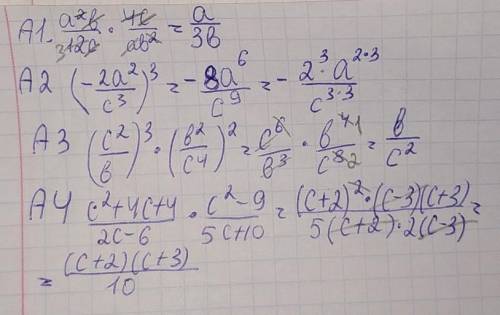 А1. a²b/312c · 4c/ab² = a/3b
А2 (-2a²/c³)³ = -8a⁶/c⁹ = - 2³·a²·³/c³·³
А3 (c²/b)³ · (b²/c⁴)² = c⁶/b³ · b⁴¹/c⁸² = b/c²
А4 c²+4c+4/2c-6 · c²-9/5c+10 = (c+2)²·(c-3)(c+3)/5(c+2)·2(c-3) =
= (c+2)(c+3)/10